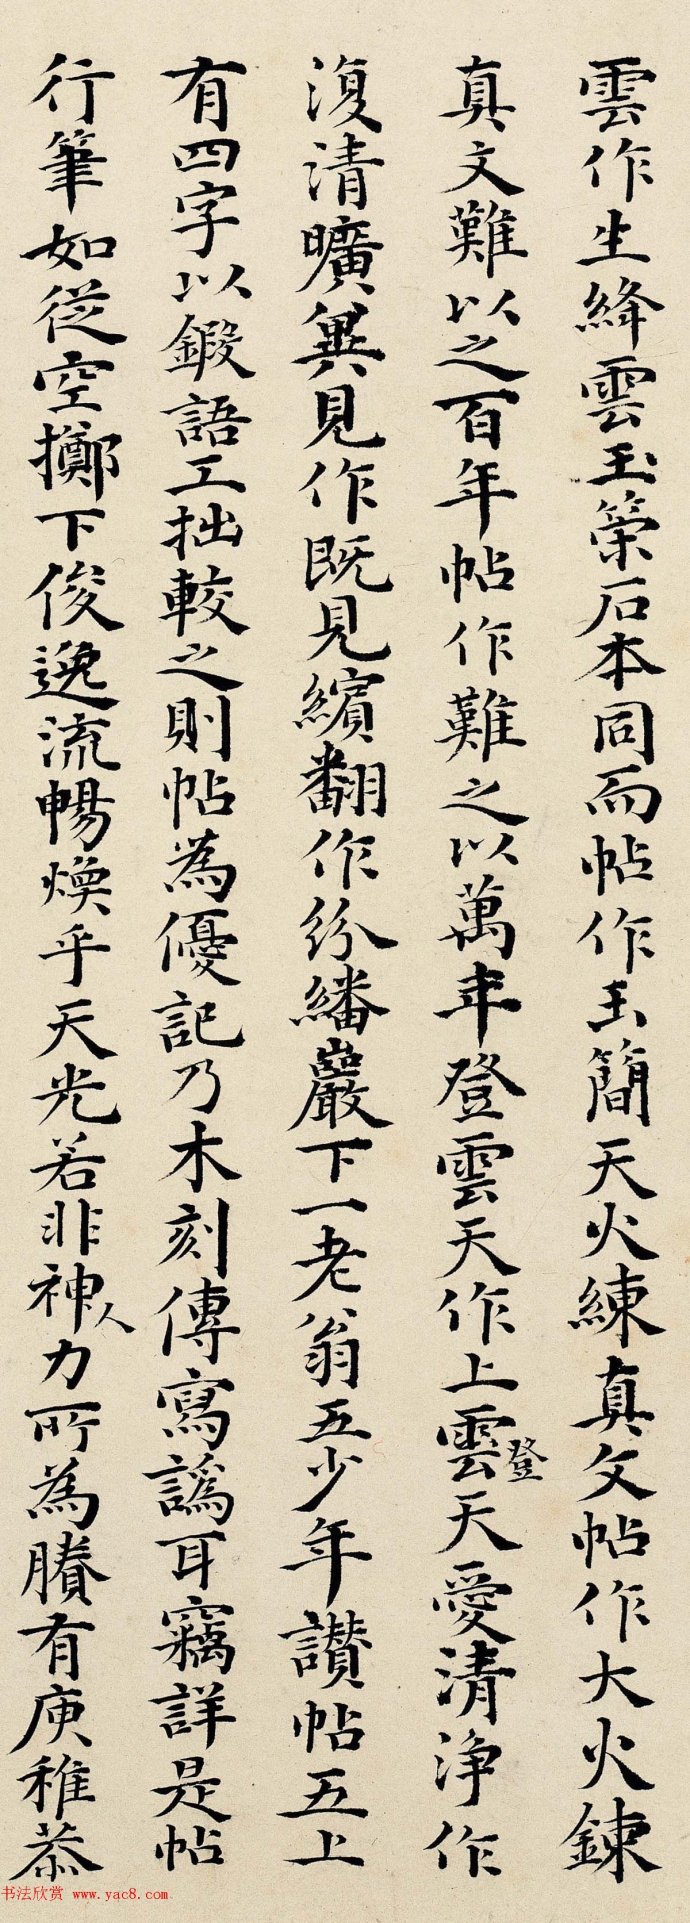 雲作生絳雲玉築石本同而帖作玉簡天火練真文帖作大火鍊
真文難以之百年帖作難之以萬年登雲天作上雲登天愛清淨作
復清曠異見作既見繽翻作紛繙巖下一老翁五少年讚帖五上
有四字以鍛語工拙較之則帖為優記乃木刻傳寫譌耳竊詳是帖
行筆如從空擲下俊逸流暢煥乎天光若非神人力所為賸有庚稚恭
书法欣赏 www.yac8.com